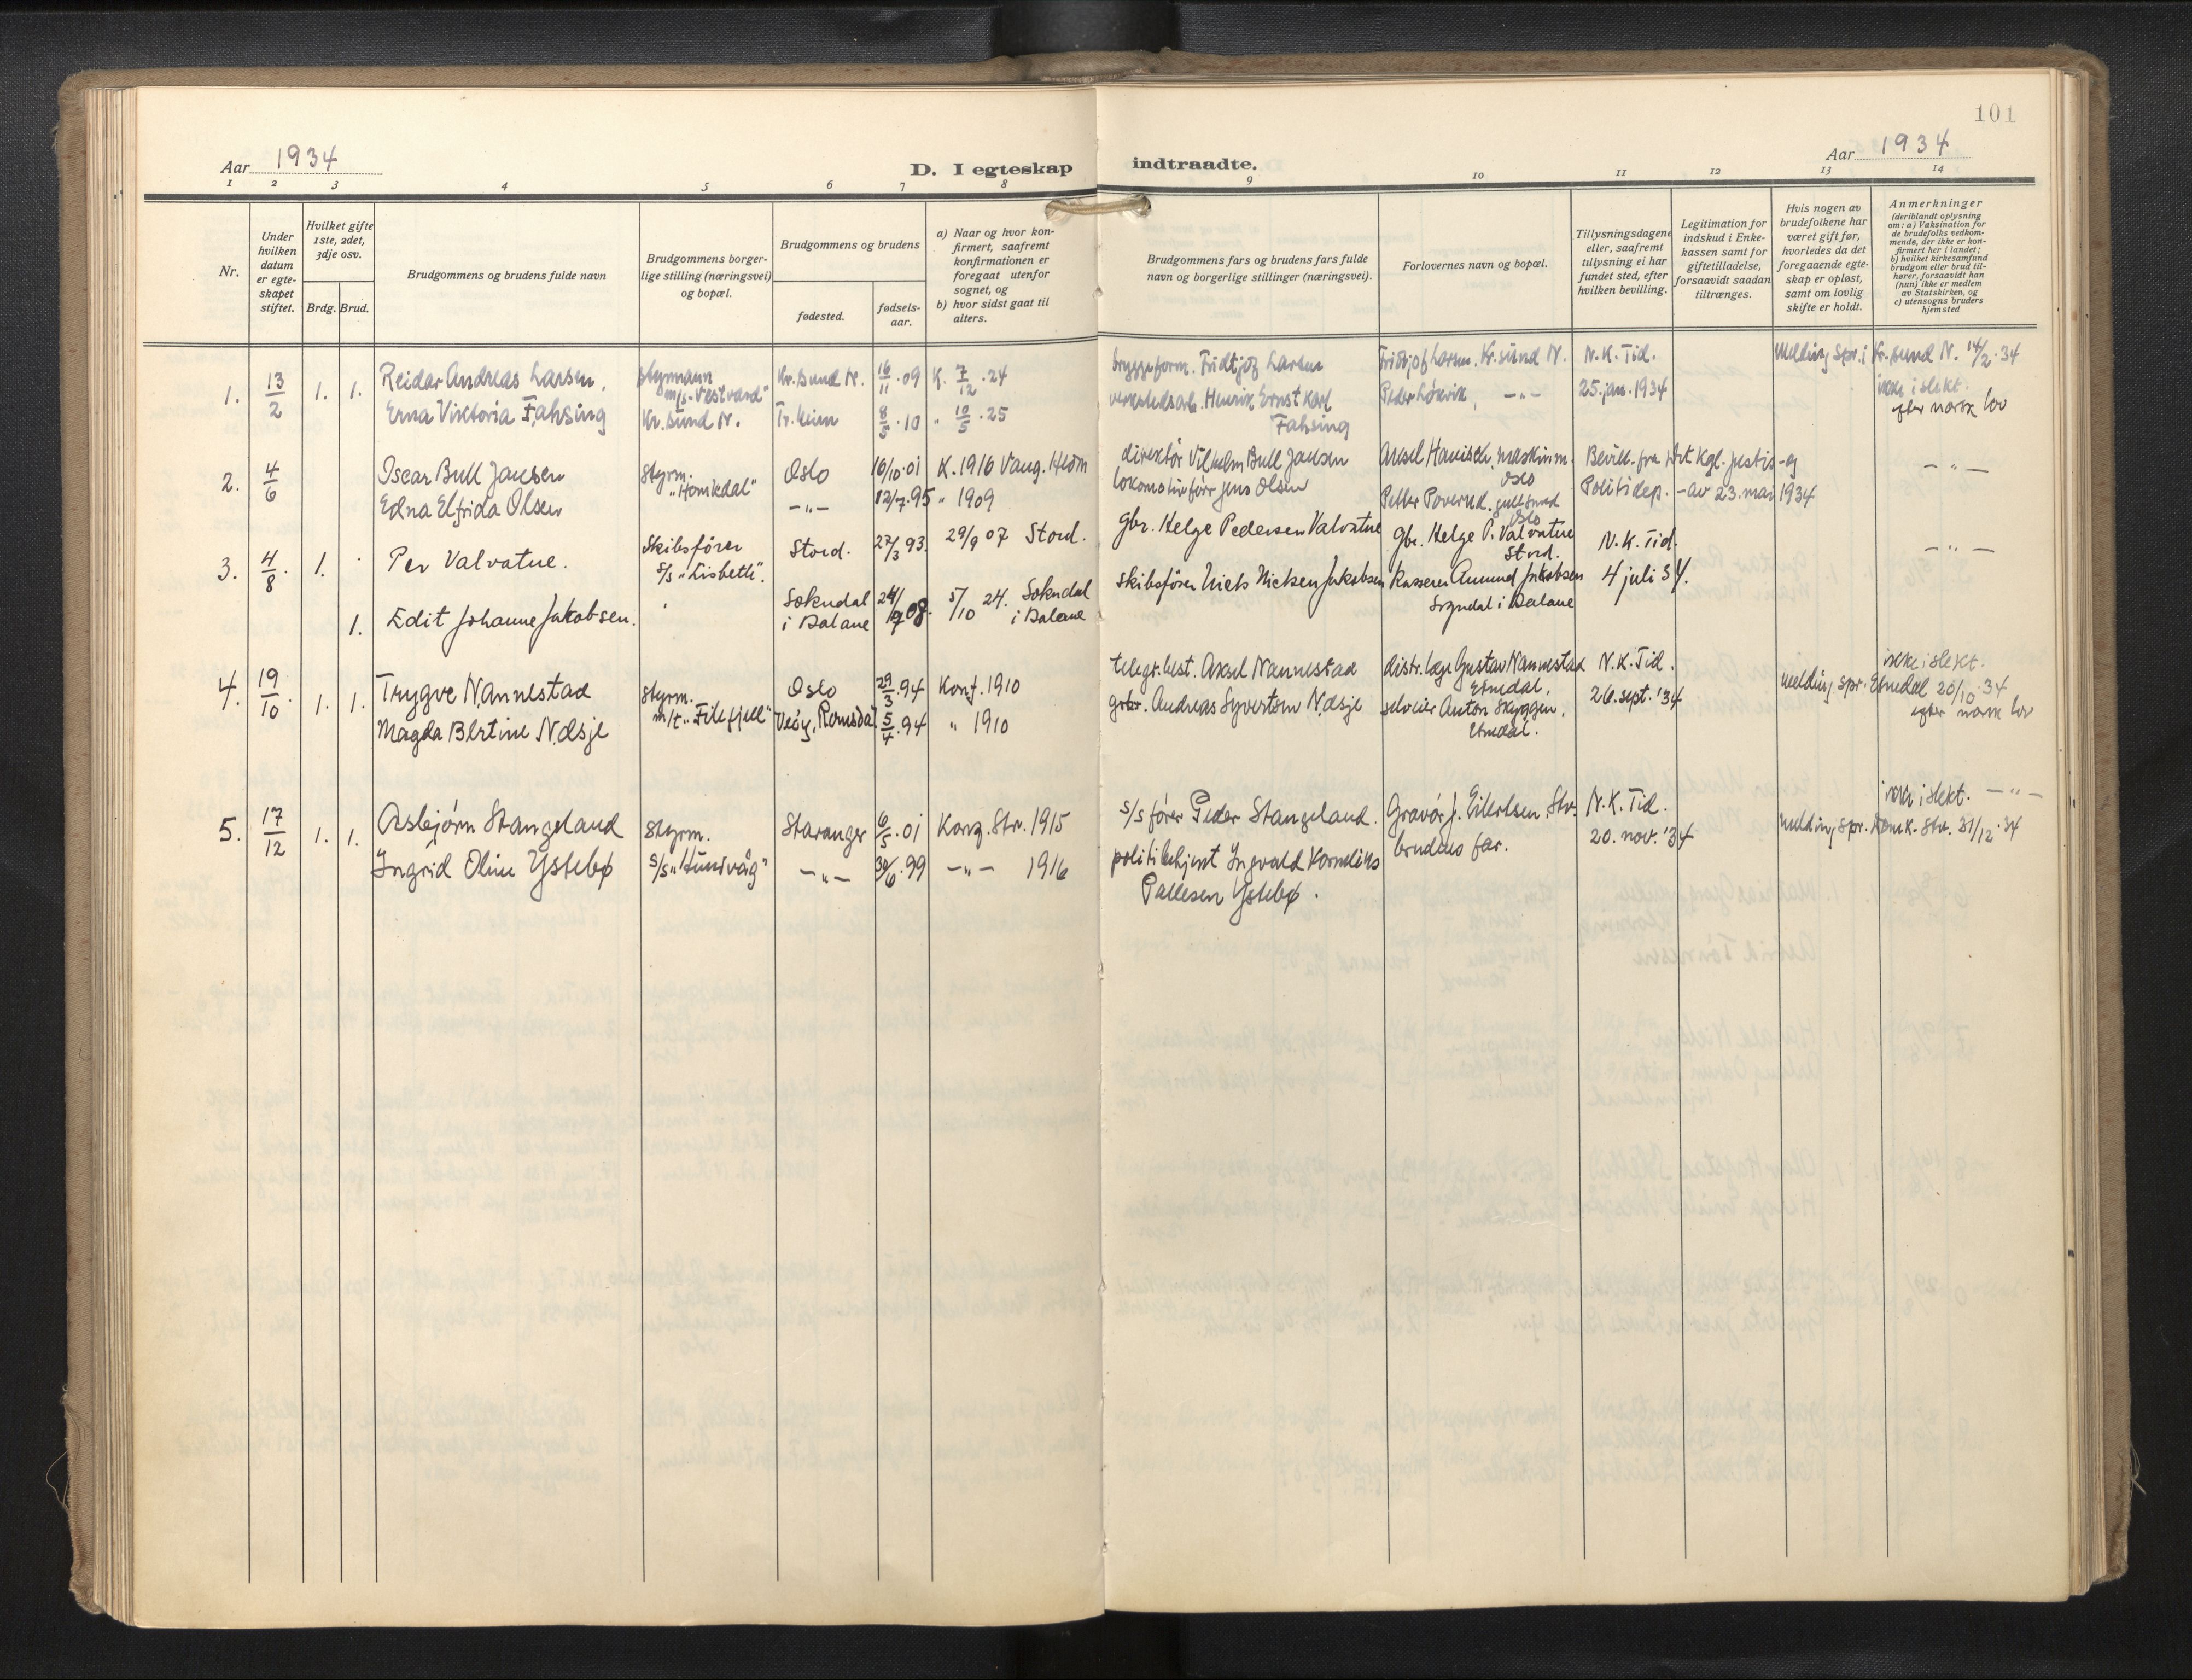 101
Aar 1934
D. I egteskap indtraadte.
Aar 1934
1 2 3 4 5 6 7 8 9 10 11 12 13 14
Nr.
Under hvilken datum er egte-skapet stiftet.
Hvilket gifte 1ste, 2det, 3dje osv.
Brdg. Brud.
Brudgommens og brudens fulde navn
Brudgommens borger-lige stilling (næringsvei) og bopæl.
Brudgommens og brudens
fødested.
fødsels-aar.
a) Naar og hvor kon-firmert, saafremt konfirmationen er foregaat utenfor sognet, og
b) hvor sidst gaat til alters.
Brudgommens fars og brudens fars fulde navn og borgerlige stillinger (næringsvei).
Forlovernes navn og bopæl.
Tillysningsdagene eller, saafremt tillysning ei har fundet sted, efter hvilken bevilling.
Legitimation for indskud i Enke-kassen samt for giftetilladelse, forsaavidt saadan tiltrænges.
Hvis nogen av brudefolkene har været gift før, hvorledes da det foregaaende egte-skap er opløst, samt om lovlig skifte er holdt.
Anmerkninger
(deriblandt oplysning om: a) Vaksination for de brudefolks vedkom-mende, der ikke er kon-firmert her i landet; b) hvilket kirkesamfund brudgom eller brud til-hører, forsaavidt han (hun) ikke er medlem av Statskirken, og c) utensogns bruders hjemsted
1. 13/2 1. 1. Reidar Andreas Larsen. styrmann m/s "Vestvard" Kr.sund N. 16/11.09 K. 7/12.24 bryggeform. Fridtjof Larsen Fridtjof Larsen. Kr.sund N. N.K. Tid. Melding spr. i Kr.sund N. 14/2.34
Erna Viktoria Fahsing Kr.sund N. Tr.heim 8/5.10 " 10/5.25 verkstedsarb. Henrik Ernst Karl Fahsing Peder Løkvik, -"- 25. jan. 1934 ikke i slekt. efter norsk lov
2. 4/6 Oscar Bull Jansen styrm. "Homledal" Oslo 16/10.01 K. 1916 Vang. Hedm direktør Vilhelm Bull Jansen Aksel Hanisch, maskinm. Oslo Bevill. fra Det Kgl. Justis- og -"-
Edna Elfrida Olsen -"- 12/7.95 " 1909 lokomotivfører Jens Olsen Petter Poverud, gullsmed Oslo Politidep. - av 23. mai 1934
3. 4/8. 1. Per Valvatne. Skibsfører s/s "Lisbeth". Stord. 27/3 93. 29/9 07 Stord. gbr. Helge Pedersen Valvatne Gbr. Helge P. Valvatne Stord. N.K. Tid. -"-
1. Edit Johanne Jakobsen. Sokndal i Dalane 24/9 08. 5/10 24. Sokndal i Dalane skibsfører Niels Nielsen Jakobsen Kasserer Amund Jakobsen Sogndal i Dalane 4 juli 34.
4. 19/10. 1. 1. Trygve Nannestad styrm. m/t. "Filefjell" Oslo 29/3.94 Konf. 1910 telegr.best. Aksel Nannestad distr.læge Gustav Nannestad Etnedal, N.K. Tid. melding spr. Etnedal 20/10.34 ikke i slekt.
Magda Bertine Nåsje Veøy, Romsdal 5/4.94 " 1910 gbr. Andreas Syvertsen Nåsje selveier Anton Skyggen, Etnedal. 26. sept. '34 efter norsk lov
5. 17/12 1. 1. Asbjørn Stangeland styrm. s/s "Hundvåg" Stavanger 6/5.01 Kong. Stv. 1915 s/s fører Peder Stangeland. Gravør J. Eilertsen, Stv. N.K. Tid. melding spr. Domk. Stv. 31/12.34 ikke i slekt. -"-
Ingrid Oline Ystebø -"- 30/6.99 -"- 1916 politibetjent Ingvald Kornelius Pallesen Ystebø. brudens far. 20. nov. '34